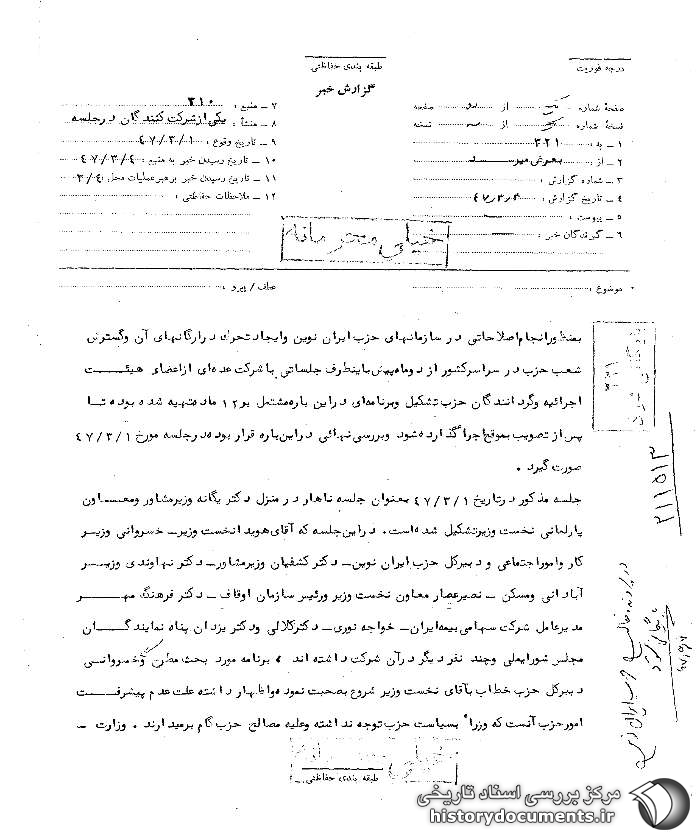 طبقه بندی حفاظتی
درجه فوریت
گزارش خبر
صفحه شماره : یک از صفحه
نسخه شماره : از نسخه
۱ ـ به : ۳۲۱
۲ ـ از :
۳ ـ شماره گزارش :
۴ ـ تاریخ گزارش :
۵ ـ پیوست :
۶ ـ گیرندگان خبر :
۷ ـ منبع : ۲۱۰
۸ ـ منشأ : یکی از شرکت کنندگان در جلسه
۹ ـ تاریخ وقوع : ۴۷/۳/۱
۱۰ ـ تاریخ رسیدن خبر به منبع : ۴۷/۳/۴
۱۱ ـ تاریخ رسیدن خبر برهبر عملیات محل : ۳/۴
۱۲ ـ ملاحظات حفاظتی :
خیلی محرمانه
موضوع :
عطف / پیرو :
بمنظور انجام اصلاحاتی در سازمانهای حزب ایران نوین وایجاد تحرک در ارگانهای آن وگسترش
شعب حزب در سراسر کشور از دو ماه پیش باینطرف جلساتی با شرکت عده ای از اعضای هیئت
اجرائیه وگردانندگان حزب تشکیل وبرنامه ای در این باره مشتمل بر ۱۲ ماده تهیه شده بوده تا
پس از تصویب بموقع اجرا گذارده شود وبررسی نهائی در این باره قرار بوده در جلسه مورخ ۴۷/۳/۱
صورت گیرد .
جلسه مذکور در تاریخ ۴۷/۳/۱ بعنوان جلسه ناهار در منزل دکتر یگانه وزیر مشاور ومعاون
پارلمانی نخست وزیر تشکیل شده است . در این جلسه که آقای هویدا نخست وزیر ـ خسروانی وزیر
کار وامور اجتماعی و دبیر کل حزب ایران نوین ـ دکتر کشفیان وزیر مشاور ـ دکتر نهاوندی وزیر
آبادانی ومسکن ـ نصیر عصار معاون نخست وزیر ورئیس سازمان اوقاف ـ دکتر فرهنگ مهر
مدیر عامل شرکت سهامی بیمه ایران ـ خواجه نوری ـ دکتر کلالی ودکتر یزدان پناه نمایندگان
مجلس شورایملی وچند نفر دیگر در آن شرکت داشته اند ، برنامه مورد بحث مطرح وخسروانی
دبیر کل حزب خطاب به آقای نخست وزیر شروع بصحبت نموده واظهار داشته علت عدم پیشرفت
امور حزب آنست که وزراء بسیاست حزب توجه نداشته وعلیه مصالح حزب گام بر میدارند . وزارت ـ
طبقه بندی حفاظتی
۲۱۱۵۱۳
مرکز بررسی اسناد تاریخی
historydocuments.ir